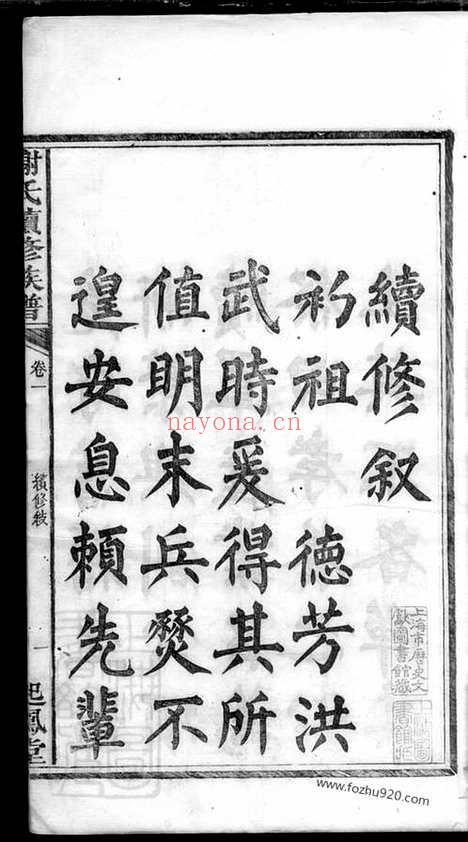 續修叙
初祖 德芳洪
武時爰得其所
值明末兵燹不
遑安息頼先輩
謝氏續修族譜
卷一
續修叙
一
起鳳堂
上海市歷史文
獻圖書館藏
nayona.cn
www.fozhu920.com